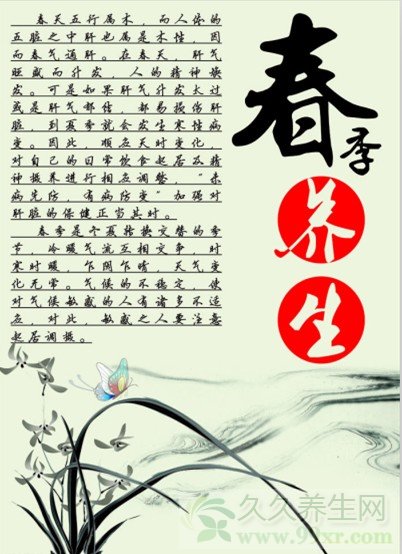 春天五行属木，而人体的
五脏之中肝也属是木性，因
而春气通肝。在春天，肝气
旺盛而升发，人的精神焕
发。可是如果肝气升发太过
或是肝气郁结，都易损伤肝
脏，到夏季就会发生寒性病
变。因此，顺应天时变化，
对自己的日常饮食起居及精
神摄养进行相应调整，“未
病先防，有病防变”加强对
肝脏的保健正当其时。
春季是冬夏转换交替的季
节，冷暖气流互相交争，时
寒时暖，乍阴乍晴，天气变
化无常。气候的不稳定，使
对气候敏感的人有诸多不适
应，对此，敏感之人要注意
起居调摄。
春
季
养
生
久久养生网
www.99xr.com